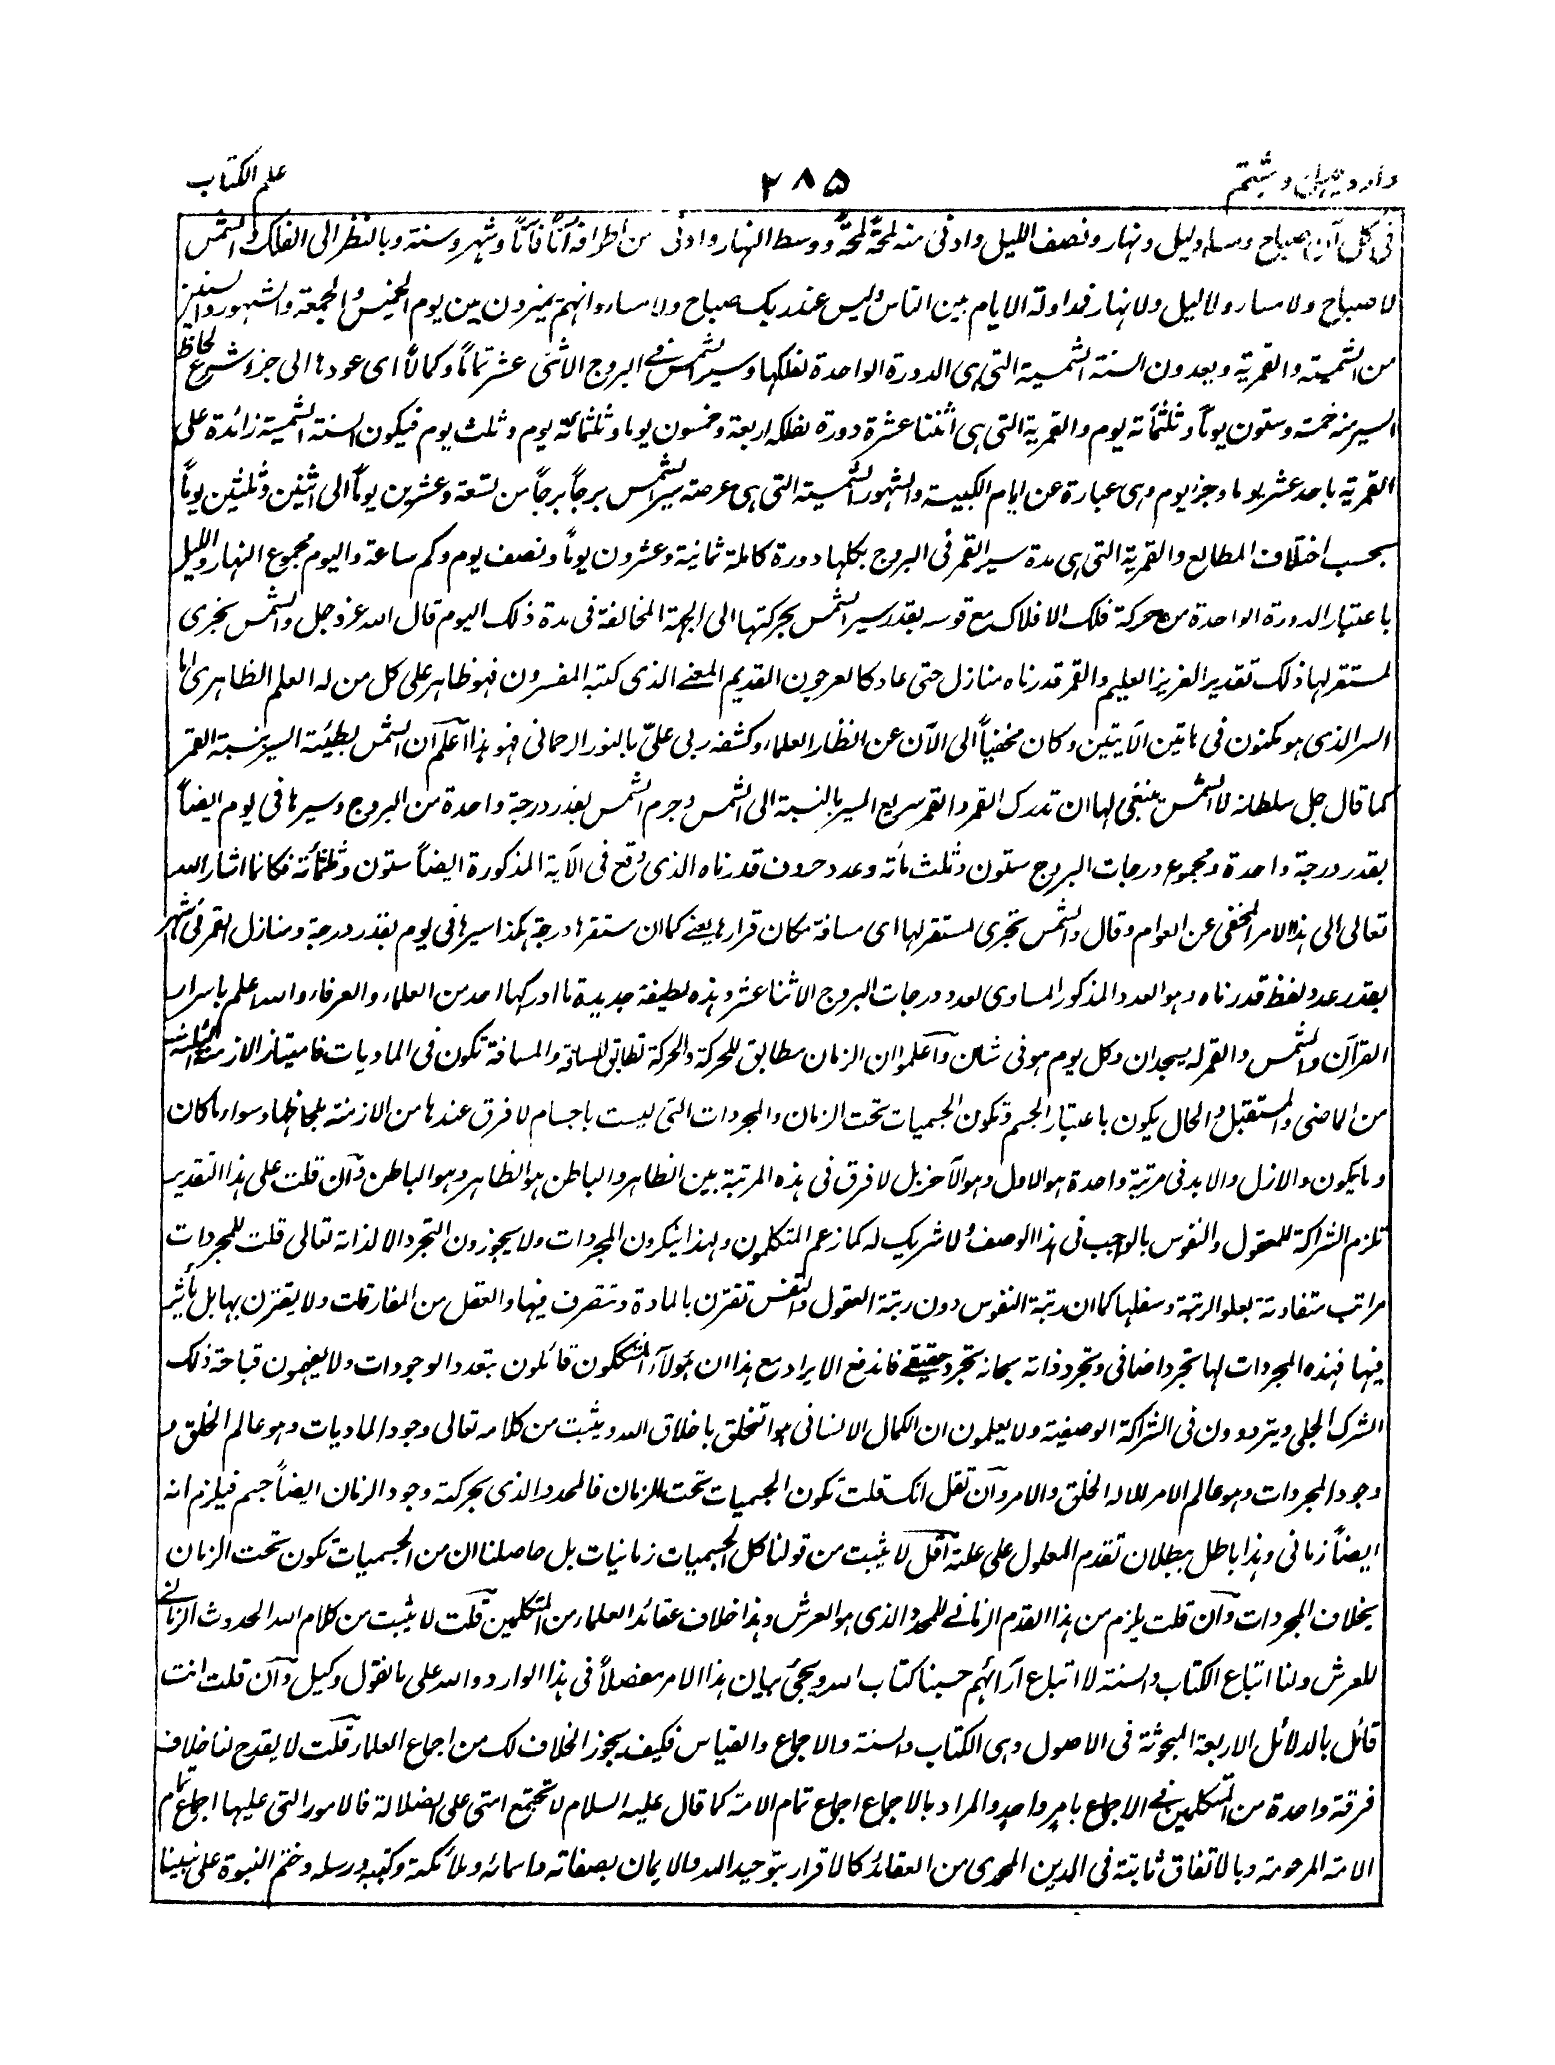 وارد چهل و ششم ٢٨۵ علم الكتاب
فى كل آن صباح ومساء وليل ونهار ونصف الليل وادنى منه لمحةً لمحةً ووسط النهار وادنى من اطرافه آناً فآناً وشهر وسنة وبالنظر الى الفلك الشمس
لا صباح ولا مساء ولا ليل ولا نهار فمداولة الايام بين الناس وليس عند ربك صباح ولا مساء وانهم يميزون بين يوم الخميس والجمعة والشهور والسنين
من الشمسية والقمرية ويعدون السنة الشمسية التى هى الدورة الواحدة لفلكها وسير الشمس فى البروج الاثنى عشر تماماً وكمالاً اى عودها الى جزء شرع لحاظ
السير منه خمسة وستون يوماً وثلثمائة يوم والقمرية التى هى اثنتا عشرة دورة لفلكه اربعة وخمسون يوما وثلثمائة يوم وثلث يوم فيكون السنة الشمسية زائدة على
القمرية باحد عشر يوما وجزء يوم وهى عبارة عن ايام الكبيسة والشهور الشمسية التى هى عرصة سير الشمس برجاً برجاً من تسعة وعشرين يوماً الى اثنين وثلثين يوماً
بحسب اختلاف المطالع والقمرية التى هى مدة سير القمر فى البروج بكلها دورة كاملة ثمانية وعشرون يوماً ونصف يوم وكم ساعة واليوم مجموع النهار والليل
باعتبار الدورة الواحدة من حركة فلك الافلاك مع قوسه بقدر سير الشمس بحركتها الى الجهة المخالفة فى مدة ذلك اليوم قال الله عز وجل والشمس تجرى
لمستقر لها ذلك تقدير العزيز العليم والقمر قدرناه منازل حتى عاد كالعرجون القديم المعنے الذى كتبه المفسرون فهو ظاهر على كل من له العلم الظاهرى اما
السر الذى هو مكنون فى هاتين الآيتين وكان مخفياً الى الآن عن انظار العلماء وكشفه ربى علىّ بالنور الرحمانى فهو هذا اعلم ان الشمس بطيئة السير بنسبة القمر
كما قال جل سلطانه لا الشمس ينبغى لها ان تدرك القمر والقمر سريع السير بالنسبة الى الشمس وجرم الشمس بقدر درجة واحدة من البروج وسيرها فى يوم ايضاً
بقدر درجة واحدة ومجموع درجات البروج ستون وثلث مائة وعدد حروف قدرناه الذى وقع فى الآية المذكورة ايضاً ستون وثلثمائة فكانما اشار الله
تعالى الى هذا الامر المخفى عن العوام وقال والشمس تجرى لمستقر لها اى مسافة مكان قرارها يعنے كما ان مستقرها درجة هكذا سيرها فى يوم بقدر درجة ومنازل القمر فى شهر
بقدر عدد لفظ قدرناه وهو العدد المذكور المساوى لعدد درجات البروج الاثنا عشر وهذه لطيفة جديدة ما ادركها احد من العلماء والعرفاء والله اعلم باسرار
القرآن والشمس والقمر له يسجدان وكل يوم هو فى شان واعلموا ان الزمان مطابق للحركة والحركة تطابق للمسافة والمسافة تكون فى الماديات فامتياز الازمنة الثلثة
من الماضى والمستقبل والحال يكون باعتبار الجسم وتكون الجسميات تحت الزمان والمجردات التى ليست باجسام لا فرق عندها من الازمنة بلحاظها وسواء ما كان
وما يكون والازل والابد فى مرتبة واحدة هو الاول وهو الآخر بل لا فرق فى هذه المرتبة بين الظاهر والباطن هو الظاهر وهو الباطن وان قلت على هذا التقدير
تلزم الشراكة للعقول والنفوس بالواجب فى هذا الوصف ولا شريك له كما زعم المتكلمون ولهذا ينكرون المجردات ولا يجوزون التجرد الا لذاته تعالى قلت للمجردات
مراتب متفاوتة بعلو الرتبة وسفلها كما ان رتبة النفوس دون رتبة العقول والنفس تقترن بالمادة وتتصرف فيها والعقل من المفارقات ولا يقترن بها بل يأثر
فيها فهذه المجردات لها تجرد اضافى وتجرد ذاته سبحانه تجرد حقيقے فاندفع الايراد مع هذا ان هؤلاء المتشككون قائلون بتعدد الوجودات ولا يفهمون قباحة ذلك
الشرك الجلى ويترددون فى الشراكة الوصفية ولا يعلمون ان الكمال الانسانى هو التخلق باخلاق الله ويثبت من كلامه تعالى وجود الماديات وهو عالم الخلق و
وجود المجردات وهو عالم الامر الا له الخلق والامر وان تقل انك قلت تكون الجسميات تحت الزمان فالمحدد الذى بحركته وجود الزمان ايضاً جسم فيلزم انه
ايضاً زمانى وهذا باطل ببطلان تقدم المعلول على علته اقل لا يثبت من قولنا كل الجسميات زمانيات بل حاصلنا ان من الجسميات تكون تحت الزمان
بخلاف المجردات وان قلت يلزم من هذا القدم الزمانے للمحدد الذى هو العرش وهذا خلاف عقائد العلماء من المتكلمين قلت لا يثبت من كلام الله الحدوث الزمانے
للعرش ولنا اتباع الكتاب والسنة لا اتباع آرائهم حسبنا كتاب الله ويجئ بيان هذا الامر مفصلاً فى هذا الوارد والله على ما نقول وكيل وان قلت انت
قائل بالدلائل الاربعة المبحوثة فى الاصول وهى الكتاب والسنة والاجماع والقياس فكيف يجوز الخلاف لك من اجماع العلماء قلت لا يقدح لنا خلاف
فرقة واحدة من المتكلمين فے الاجماع بامر واحد والمراد بالاجماع اجماع تمام الامة كما قال عليه السلام لا تجتمع امتى على الضلالة فالامور التى عليها اجماع تمام
الامة المرحومة وبالاتفاق ثابتة فى الدين المحمدى من العقائد كالاقرار بتوحيد الله والايمان بصفاته واسمائه وملائكته وكتبه ورسله وختم النبوة على نبينا